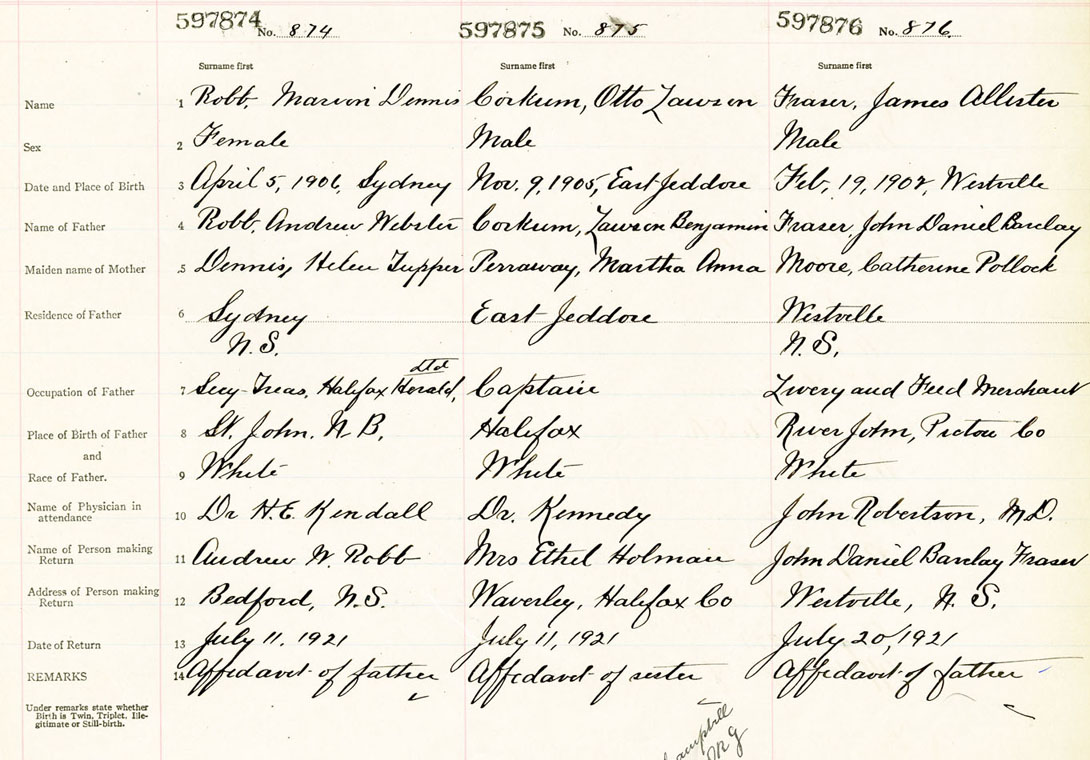 597874 No. 874 597875 No. 875 597876 No. 876.
Surname first Surname first Surname first
Name 1 Robb, Marion Dennis Corkum, Otto Lawson Fraser, James Allister
Sex 2 Female Male Male
Date and Place of Birth 3 April 5, 1906, Sydney Nov. 9, 1905, East Jeddore Feb. 19, 1902, Westville
Name of Father 4 Robb, Andrew Webster Corkum, Lawson Benjamin Fraser, John Daniel Barclay
Maiden name of Mother 5 Dennis, Helen Tupper Perraway, Martha Anna Moore, Catherine Pollock
Residence of Father 6 Sydney East Jeddore Westville
N.S. N.S.
Ltd
Occupation of Father 7 Secy-Treas, Halifax Herald, Captain Livery and Feed Merchant
Place of Birth of Father 8 St. John. N.B. Halifax River John, Pictou Co
and
Race of Father. 9 White White White
Name of Physician in attendance 10 Dr H.E. Kendall Dr. Kennedy John Robertson, M.D.
Name of Person making Return 11 Andrew W. Robb Mrs Ethel Holman John Daniel Barclay Fraser
Address of Person making Return 12 Bedford, N.S. Waverley, Halifax Co Westville, N.S.
Date of Return 13 July 11, 1921 July 11, 1921 July 20, 1921
REMARKS 14 Affidavit of father Affidavit of sister Affidavit of father
Under remarks state whether
Birth is Twin, Triplet, Ille-
gitimate or Still-birth.